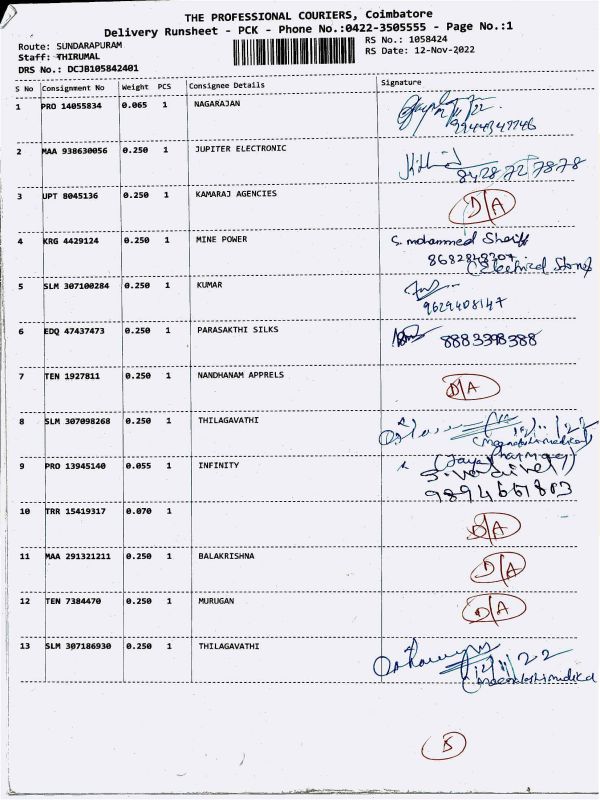 THE PROFESSIONAL COURIERS, Coimbatore
Delivery Runsheet - PCK - Phone No.:0422-3505555 - Page No.:1
Route: SUNDARAPURAM
RS No.: 1058424
Staff: THIRUMAL
RS Date: 12-Nov-2022
DRS No.: DCJB105842401
S No Consignment No Weight PCS Consignee Details Signature
1 PRO 14055834 0.065 1 NAGARAJAN
2 MAA 938630056 0.250 1 JUPITER ELECTRONIC
8428727878
3 UPT 8045136 0.250 1 KAMARAJ AGENCIES D/A
4 KRG 4429124 0.250 1 MINE POWER S. mohammed Sheriff
5 SLM 307100284 0.250 1 KUMAR
9629408147
6 EDQ 47437473 0.250 1 PARASAKTHI SILKS 8883398388
7 TEN 1927811 0.250 1 NANDHANAM APPRELS D/A
8 SLM 307098268 0.250 1 THILAGAVATHI
9 PRO 13945140 0.055 1 INFINITY
9894661803
10 TRR 15419317 0.070 1 D/A
11 MAA 291321211 0.250 1 BALAKRISHNA D/A
12 TEN 7384470 0.250 1 MURUGAN D/A
13 SLM 307186930 0.250 1 THILAGAVATHI
12/11/22
5